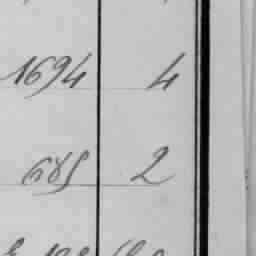 1694 4
685 2